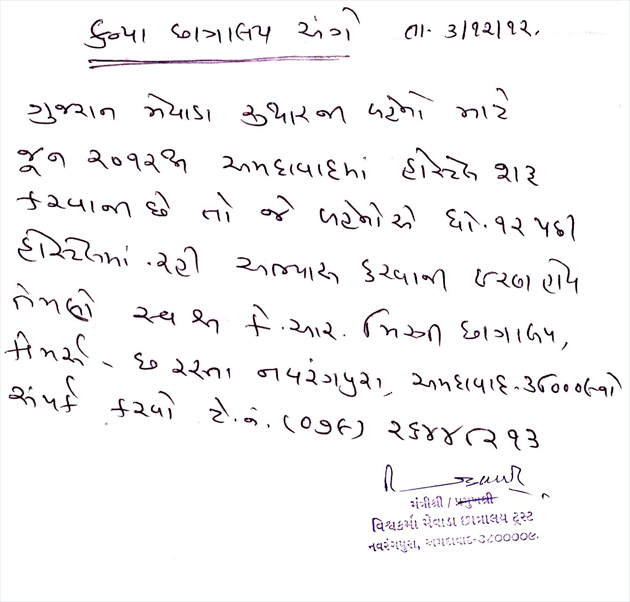 કન્યા છાત્રાલય અંગે તા. 3/12/12.
ગુજરાન મેવાડા સુથારની બહેનો માટે
જૂન ૨૦૧૨થી અમદાવાદમાં હોસ્ટેલ શરૂ
કરવાની છે તો જે બહેનોએ ધો.૧૨ પછી
હોસ્ટેલમાં રહી અભ્યાસ કરવાની ઇચ્છા હોય
તેમણે સ્વ શ્રી કે.આર. મિસ્ત્રી છાત્રાલય,
છ રસ્તા નવરંગપુરા, અમદાવાદ-૩૮૦૦૦૯નો
સંપર્ક કરવો ટે.નં. (૦૭૯)
મંત્રીશ્રી / પ્રમુખશ્રી
વિશ્વકર્મા મેવાડા છાત્રાલય ટ્રસ્ટ
નવરંગપુરા, અમદાવાદ-૩૮૦૦૦૦૯.